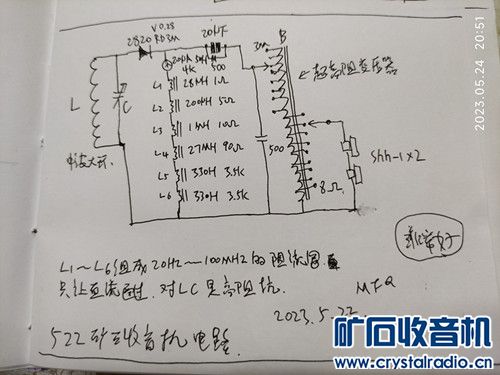 V 0.28
2820 RD3M
20μF
B
500
4K
超高阻变压器
L
C
L1 28MH 1Ω
L2 200MH 5Ω
L3 1MH 10Ω
L4 27MH 90Ω
L5 330H 3.5K
L6 330H 3.5K
500
8Ω
Shh-1×2
中波大环
非常好
L1~L6组成20Hz~100MHz的阻流圈
只让直流通过,对LC呈高阻抗.
2023.5.22
522矿石收音机电路.
2023.05.24 20:51
矿石收音机
www.crystalradio.cn